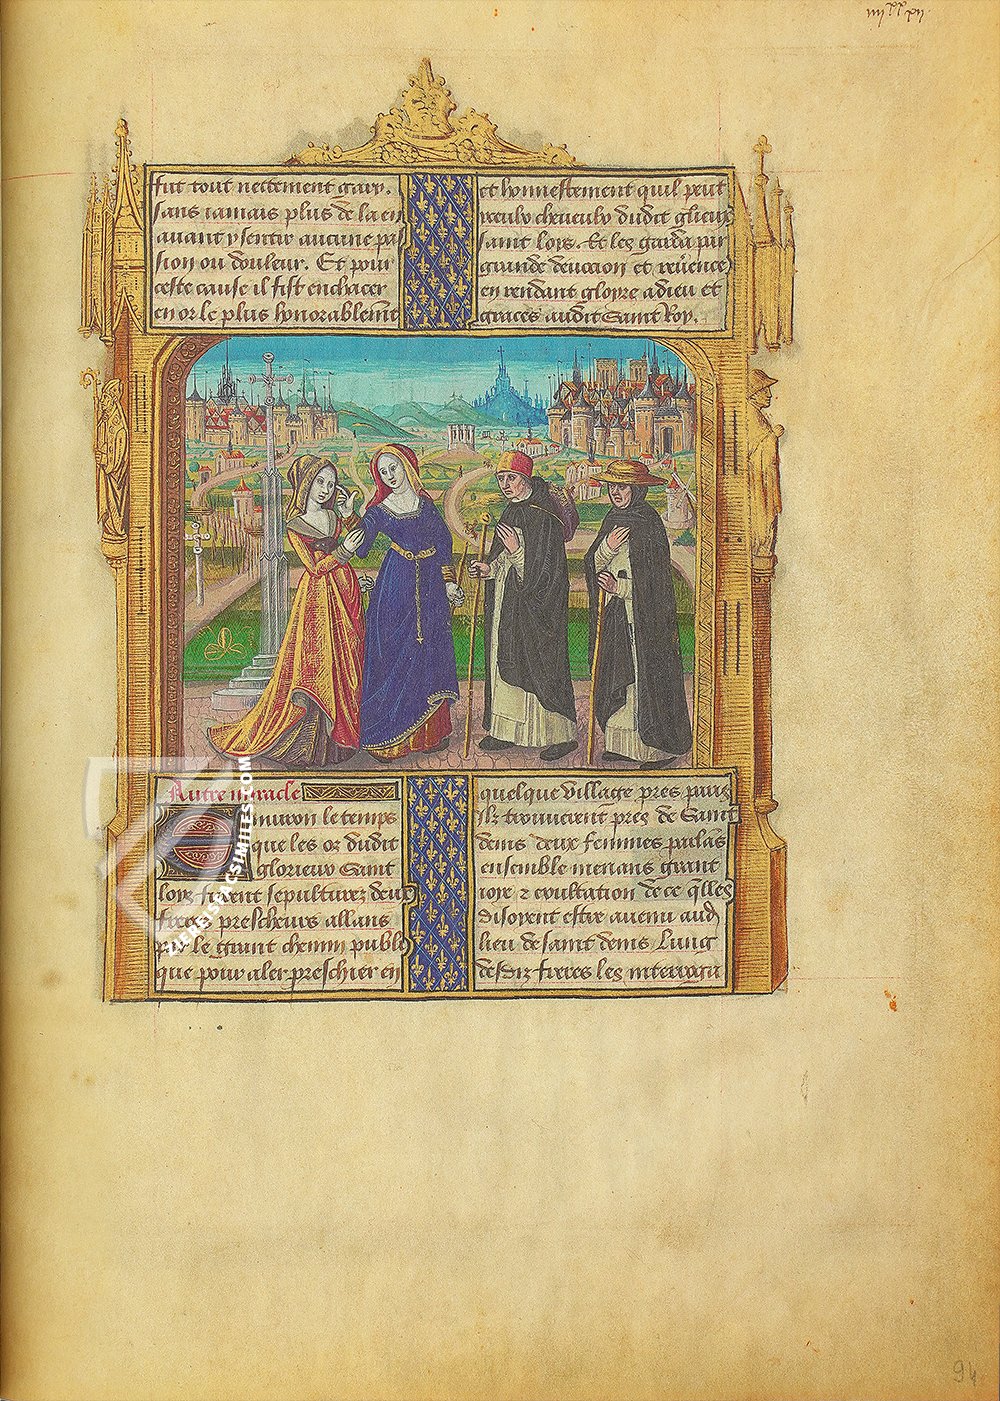 iiij^xx xij.
fut tout nectement gary.
sans iamais plus de la en
auant y sentir aucune pas
sion ou douleur. Et pour
ceste cause il fist enchacer
en or le plus honorablemēt
et honnestement quil peut
cheueulx dudit glieux
saint loys. Et les garda par
grande deuocion et reuerence
en rendant gloyre a dieu et
graces audit Saint Roy.
Autre miracle
Enuiron le temps
que les oz dudit
glorieux Saint
loys furent sepulturez deux
freres prescheurs allans
par le grant chemin publi
que pour aler preschier en
quelque village pres paris
Ilz trouuerent pres de Saint
denis deux femmes parlās
ensemble menans grant
ioye z exultation de ce q̄lles
disoyent estre auenu aud
lieu de saint denis Lung
desdiz freres les interroga
ZIEREISFACSIMILES.COM
94